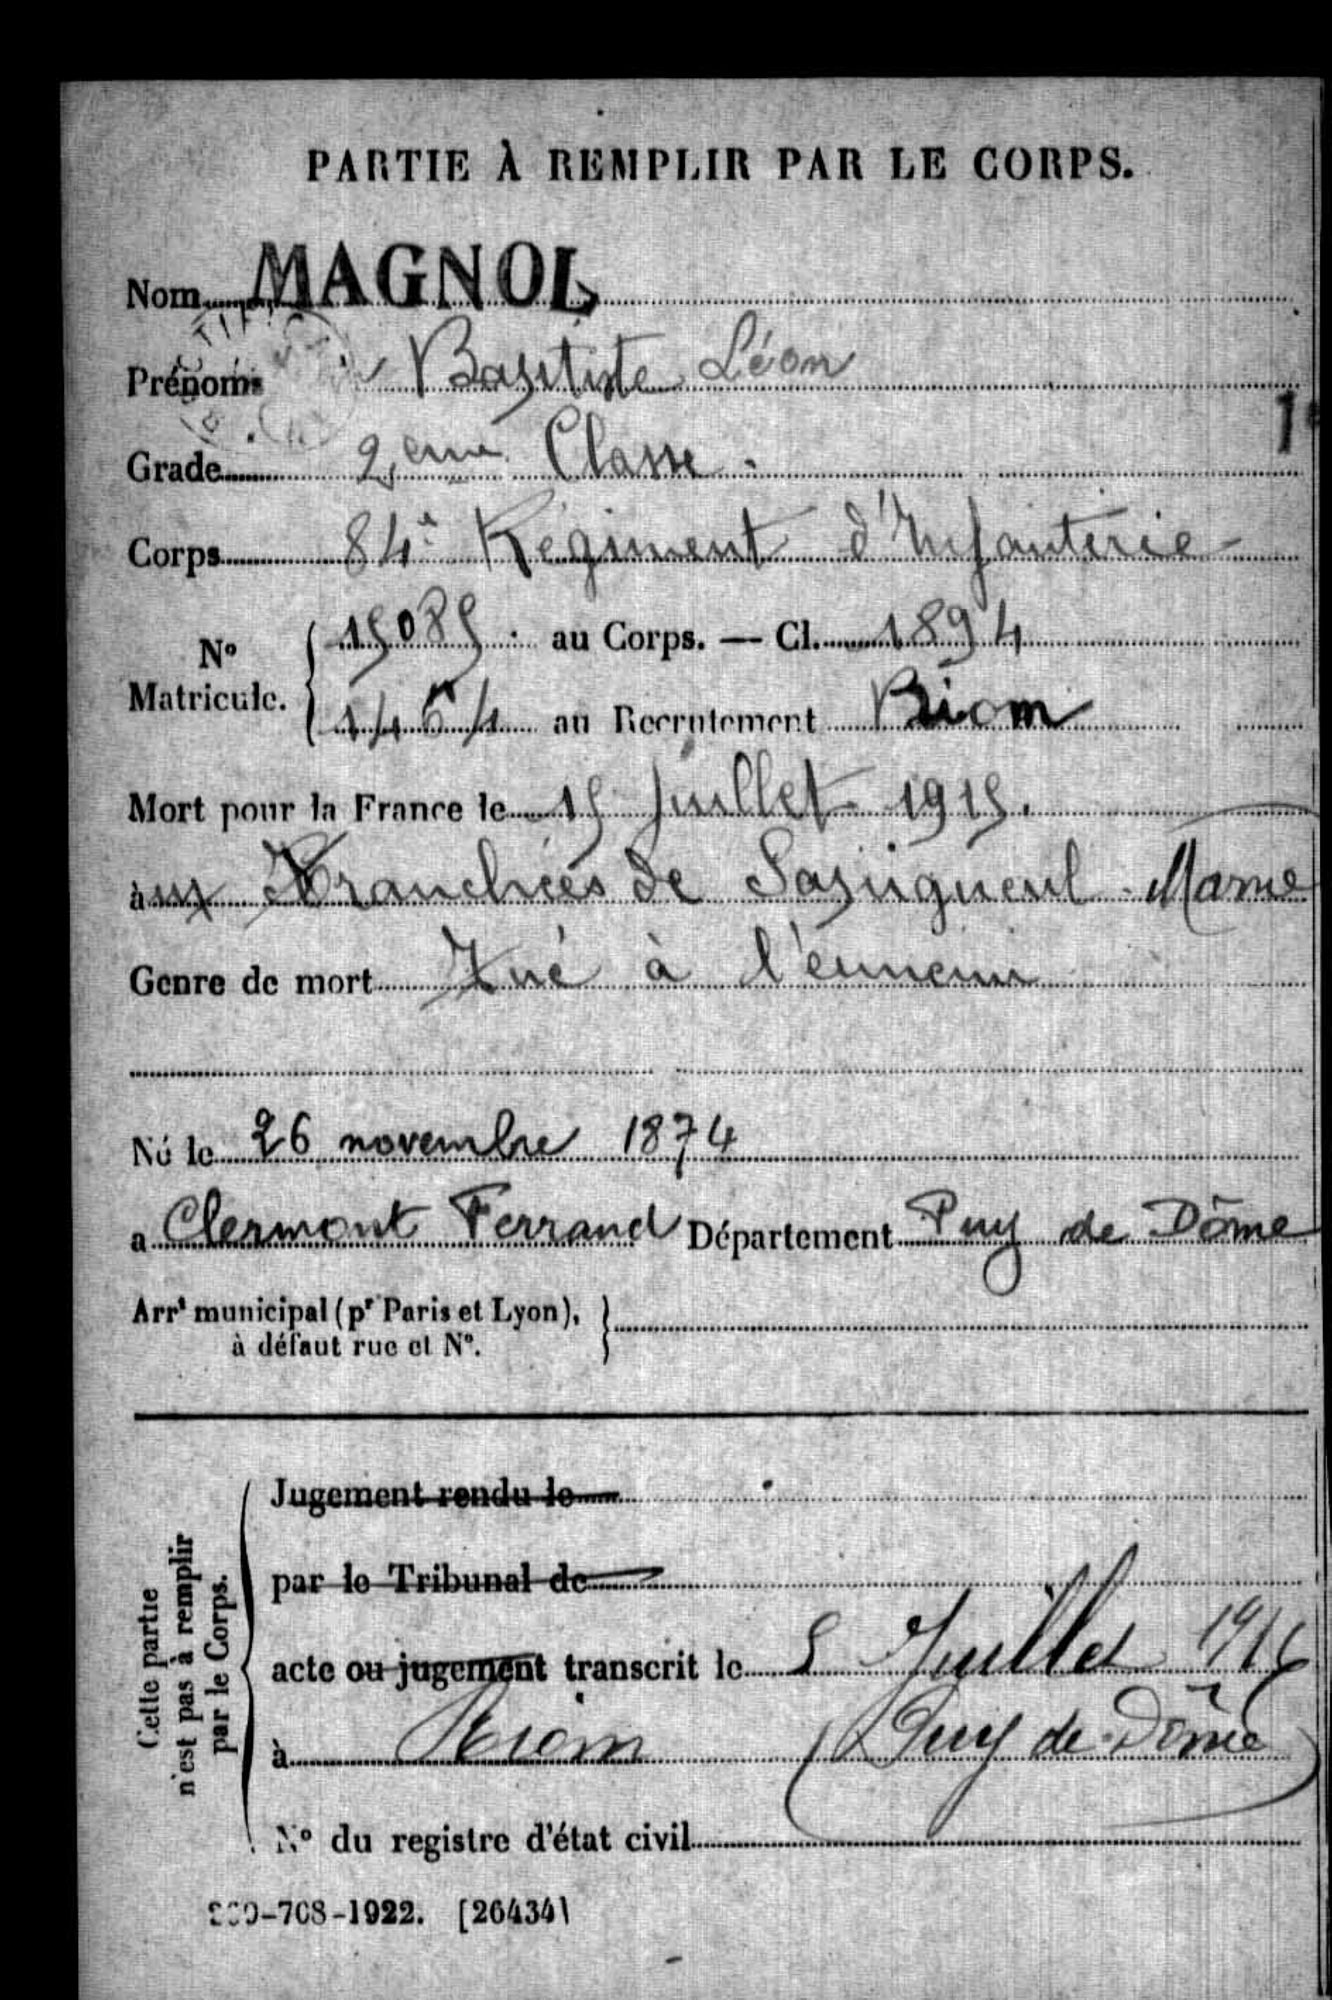 PARTIE À REMPLIR PAR LE CORPS.
Nom MAGNOL
Prénoms Baptiste Léon
Grade 2eme Classe.
1
Corps 84e Régiment d'Infanterie
N° Matricule. 15085 au Corps. — Cl. 1894
1464 au Recrutement Riom
Mort pour la France le 15 Juillet 1915.
aux Tranchées de Sapigneul Marne
Genre de mort Tué à l'ennemi
Né le 26 novembre 1874
a Clermont Ferrand Département Puy de Dôme
Arrt municipal (pr Paris et Lyon),
à défaut rue et N°.
Cette partie
n'est pas à remplir
par le Corps.
Jugement rendu le
par le Tribunal de
acte ou jugement transcrit le 5 Juillet 1916
à Riom (Puy de Dôme)
N° du registre d'état civil
-708-1922. [26434]